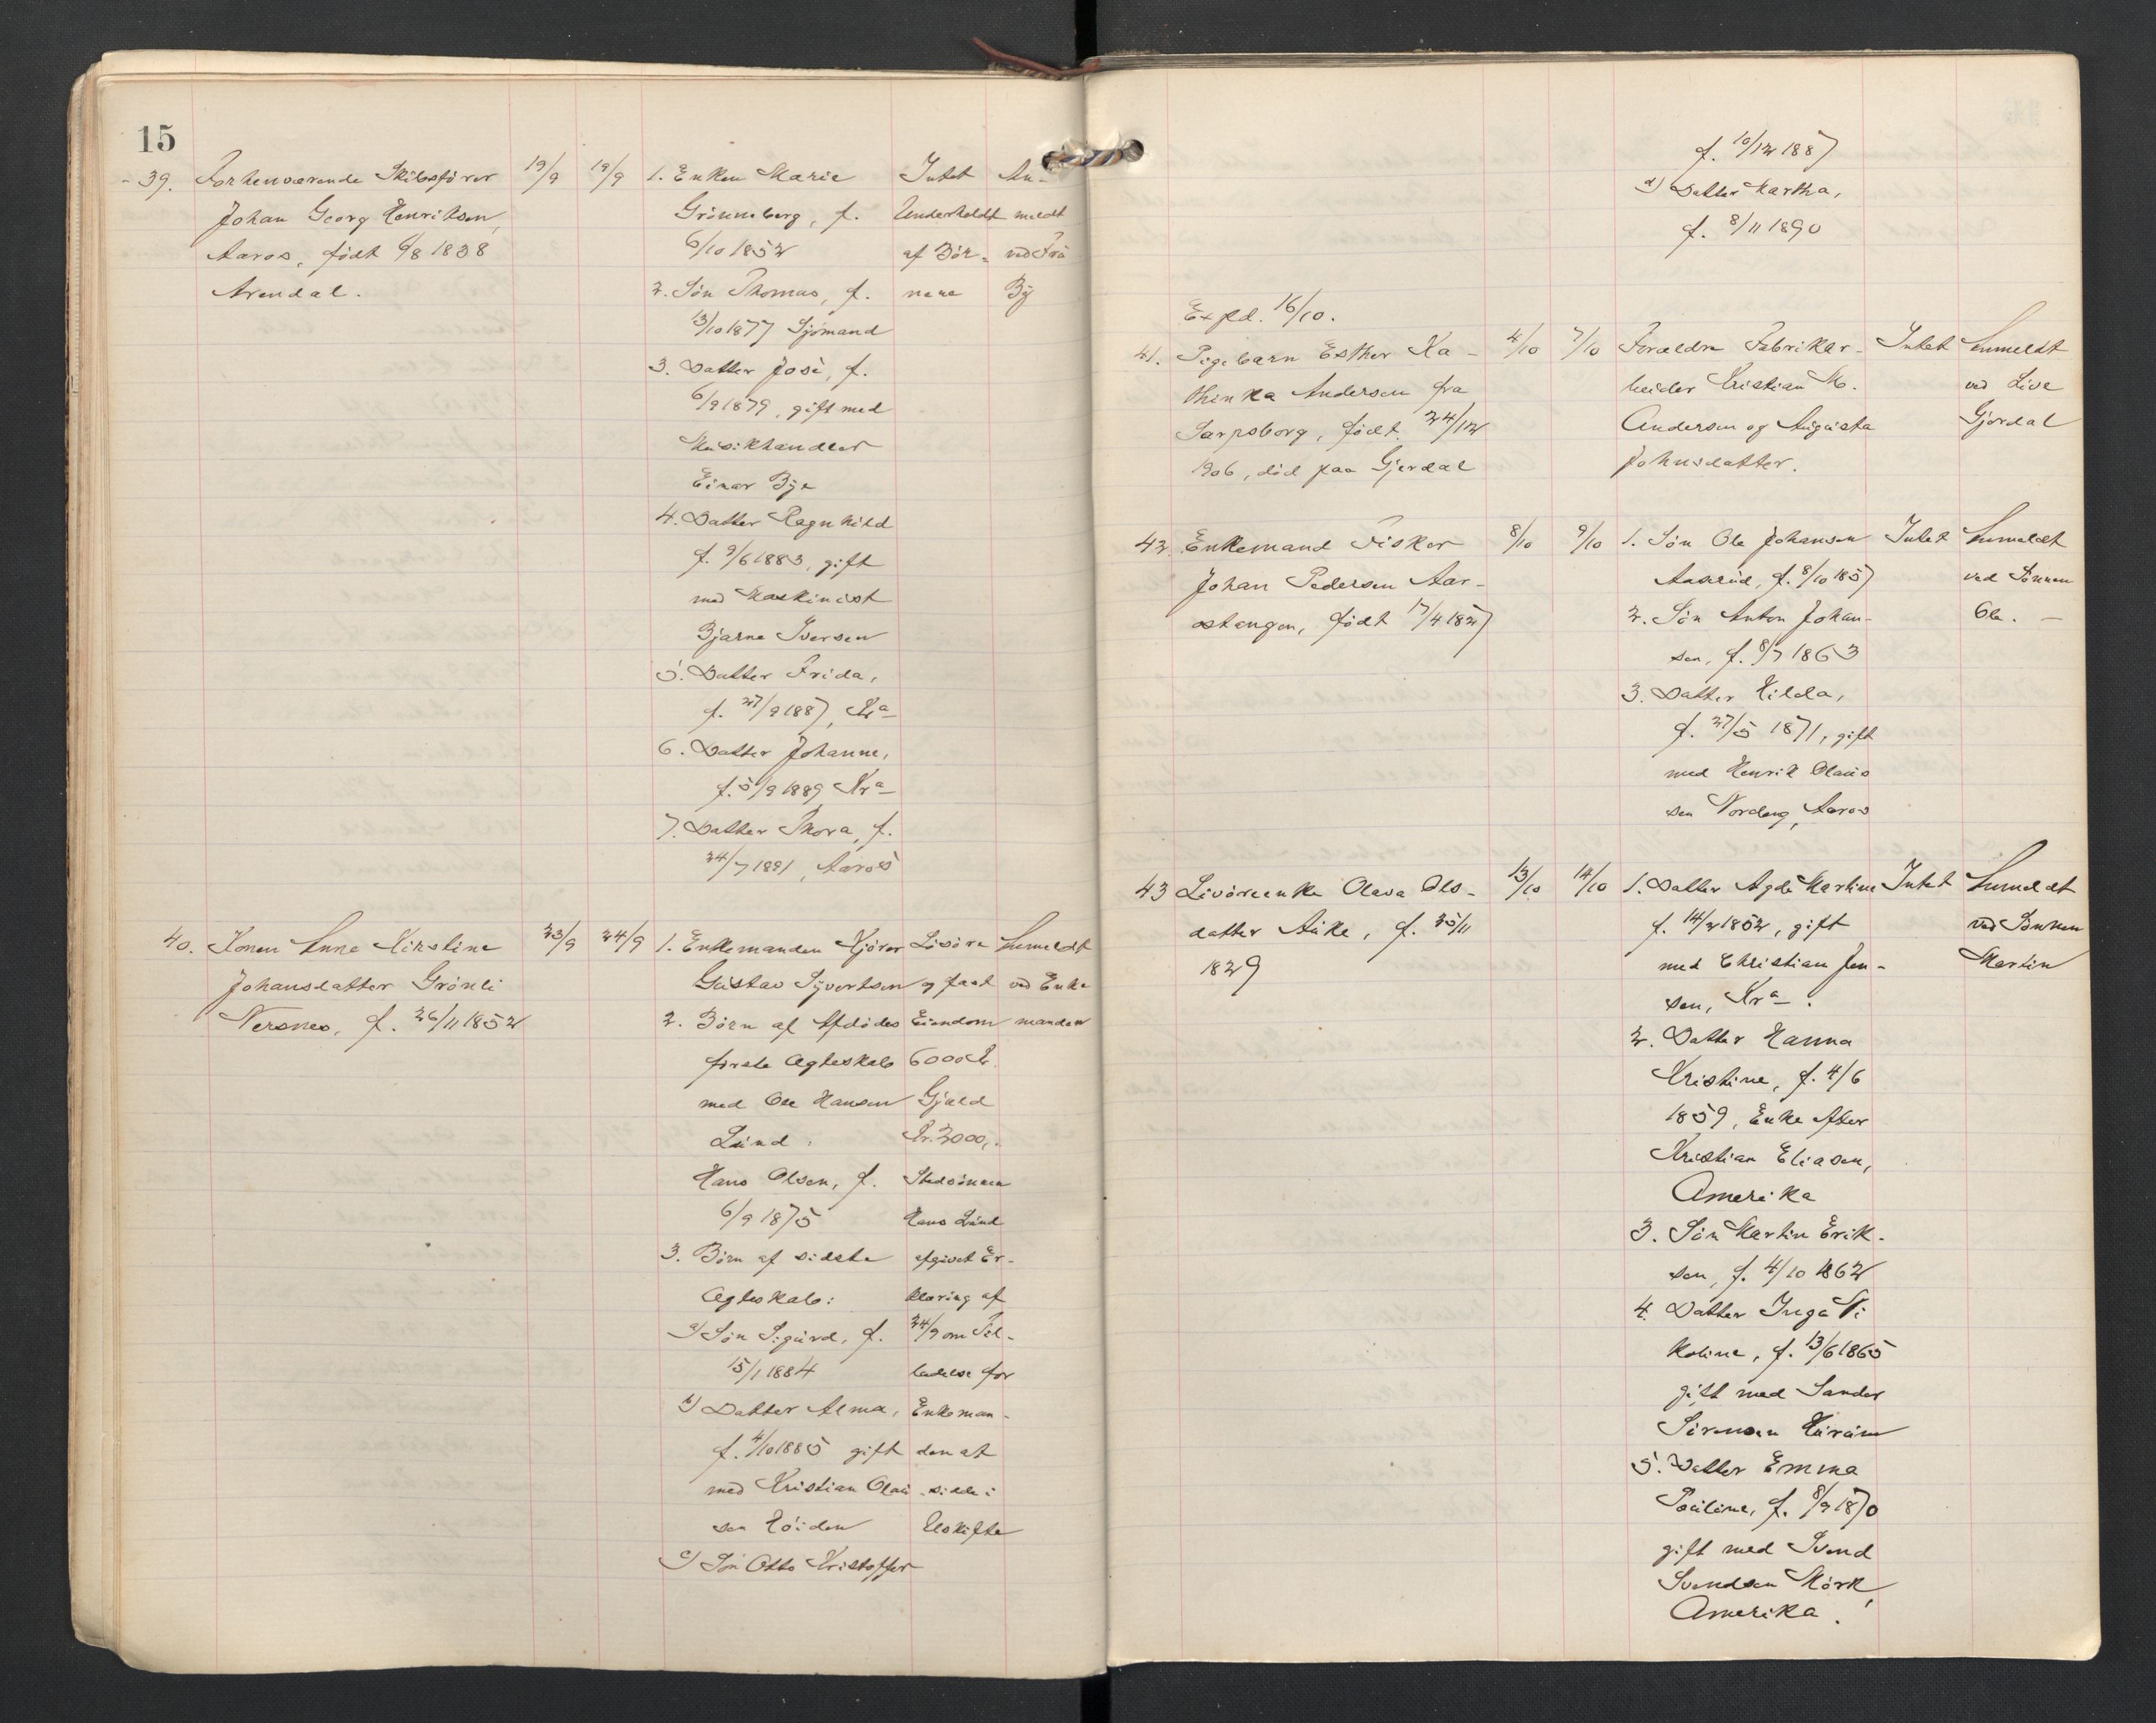 15
39. Forhenværende Skibsfører
Johan Georg Henriksen,
Aaros, født 6/8 1838
Arendal.
19/9
19/9
1. Enken Marie
Grønneberg, f.
6/10 1852
2. Søn Thomas, f.
13/10 1877 Sjømand
3. Datter Josi, f.
6/9 1879, gift med
Musikhandler
Einar Bye
4. Datter Ragnhild
f. 9/6 1883, gift
med Maskinist
Bjarne Iversen
5. Datter Frida,
f. 27/9 1887, Kra
6. Datter Johanne,
f. 5/9 1889 Kra
7. Datter Thora, f.
24/7 1891, Aaros
Intet
Underholdt
af Bör-
nene
An-
meldt
ved Fru
By
40. Konen Anne Kirstine
Johansdatter Grönli
Nersnes, f. 26/11 1852
23/9
24/9
1. Enkemanden Kjører
Gustav Syvertsen
2. Børn af Afdødes
første Ægteskab
med Ole Hansen
Lund:
Hans Olsen, f.
6/9 1875
3. Børn af sidste
Ægteskab:
a) Søn Sigurd, f.
15/1 1884
b) Datter Alma,
f. 4/10 1885 gift
med Kristian Olau
sen Höiden
c) Søn Otto Kristoffer
Lösöre
og fast
Eiendom
6000 Kr.
Gjæld
Kr. 2000,.
Stedsönnen
Hans Lund
afgivet Er-
klæring af
24/9 om Til-
ladelse for
Enkeman-
den at
sidde i
Uskifte
Anmeldt
ved Enke
manden
f. 10/12 1887
d) Datter Martha,
f. 8/11 1890
Expd. 16/10.
41. Pigebarn Esther Ka-
thinka Andersen fra
Sarpsborg, født 24/12
1906, död paa Gjerdal
4/10
7/10
Forældre Fabrikar-
beider Kristian M.
Andersen og Augusta
Johnsdatter.
Intet
Anmeldt
ved Live
Gjerdal
42. Enkemand Fisker
Johan Pedersen Aar-
ostangen, født 17/4 1827
8/10
9/10
1. Søn Ole Johansen
Aaserud, f. 8/10 1857
2. Søn Anton Johan-
sen, f. 8/7 1863
3. Datter Hilda,
f. 27/5 1871, gift
med Henrik Olaus
sen Nordeng, Aaros
Intet
Anmeldt
ved Sønnen
Ole. -
43 Livöreenke Olava Ols-
datter Auke, f. 25/11
1829
13/10
14/10
1. Datter Agde Martine
f. 14/2 1852, gift
med Christian Jen-
sen, Kra.
2. Datter Hanna
Kristine, f. 4/6
1859, Enke efter
Kristian Eliasen,
Amerika
3. Søn Martin Erik-
sen, f. 4/10 1862
4. Datter Inga Ni
koline, f. 13/6 1865
gift med Sander
Sörensen
5. Datter Emma
Pauline, f. 8/9 1870
gift med Svend
Svendsen Mörk,
Amerika.
Intet
Anmeldt
ved Sönnen
Martin